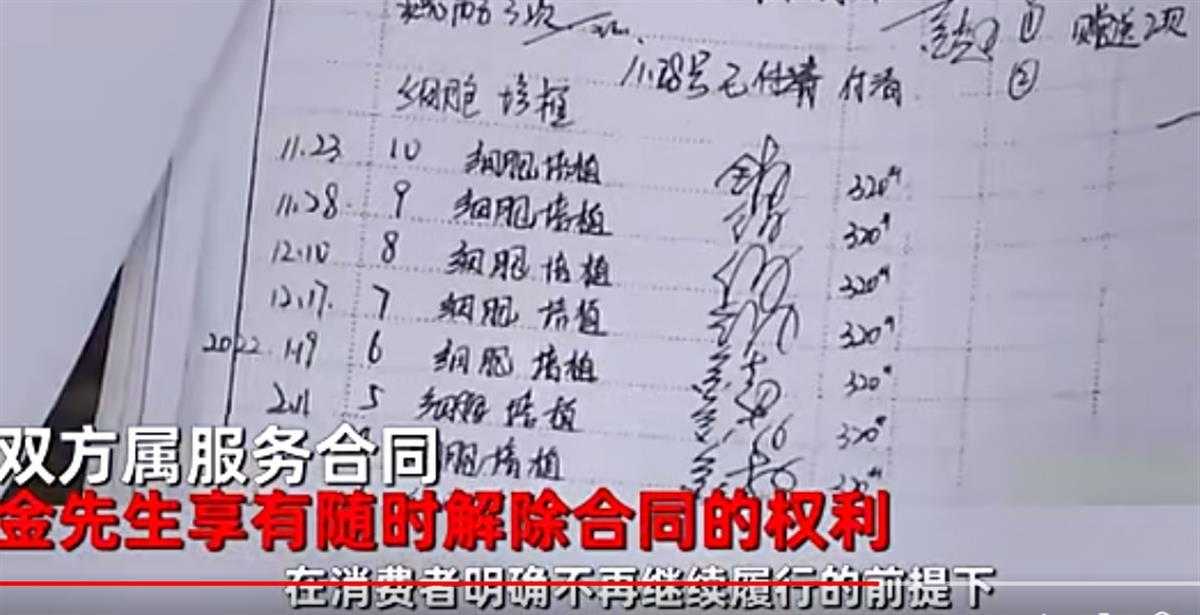 赠送2项
①
②
11.28号已付清 付清
细胞培植
11.23 10 细胞培植 320
11.28. 9 细胞培植 320
12.10 8 细胞培植 320
12.17. 7 细胞培植 320
2022. 1.19 6 细胞培植 320
2.11 5 细胞培植 320
胞培植 320
双方属服务合同
金先生享有随时解除合同的权利
在消费者明确不再继续履行的前提下